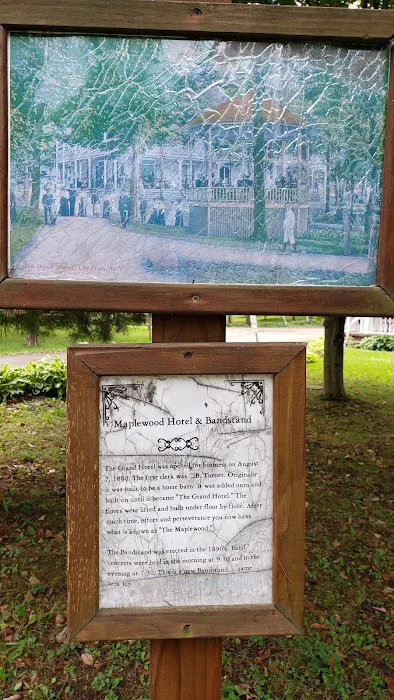 The Band Stand, Lily Dale, N.Y.
Maplewood Hotel & Bandstand
The Grand Hotel was opened for business on August
7, 1880. The first clerk was J.B. Turner. Originally
it was built to be a horse barn. It was added onto and
built on until it became "The Grand Hotel." The
floors were lifted and built under floor by floor. After
much time, effort and perseverance you now have
what is known as "The Maplewood."
The Bandstand was erected in the 1890's. Band
concerts were held in the morning at 9:30 and in the
evening at 7:30. This is a new Bandstand - same